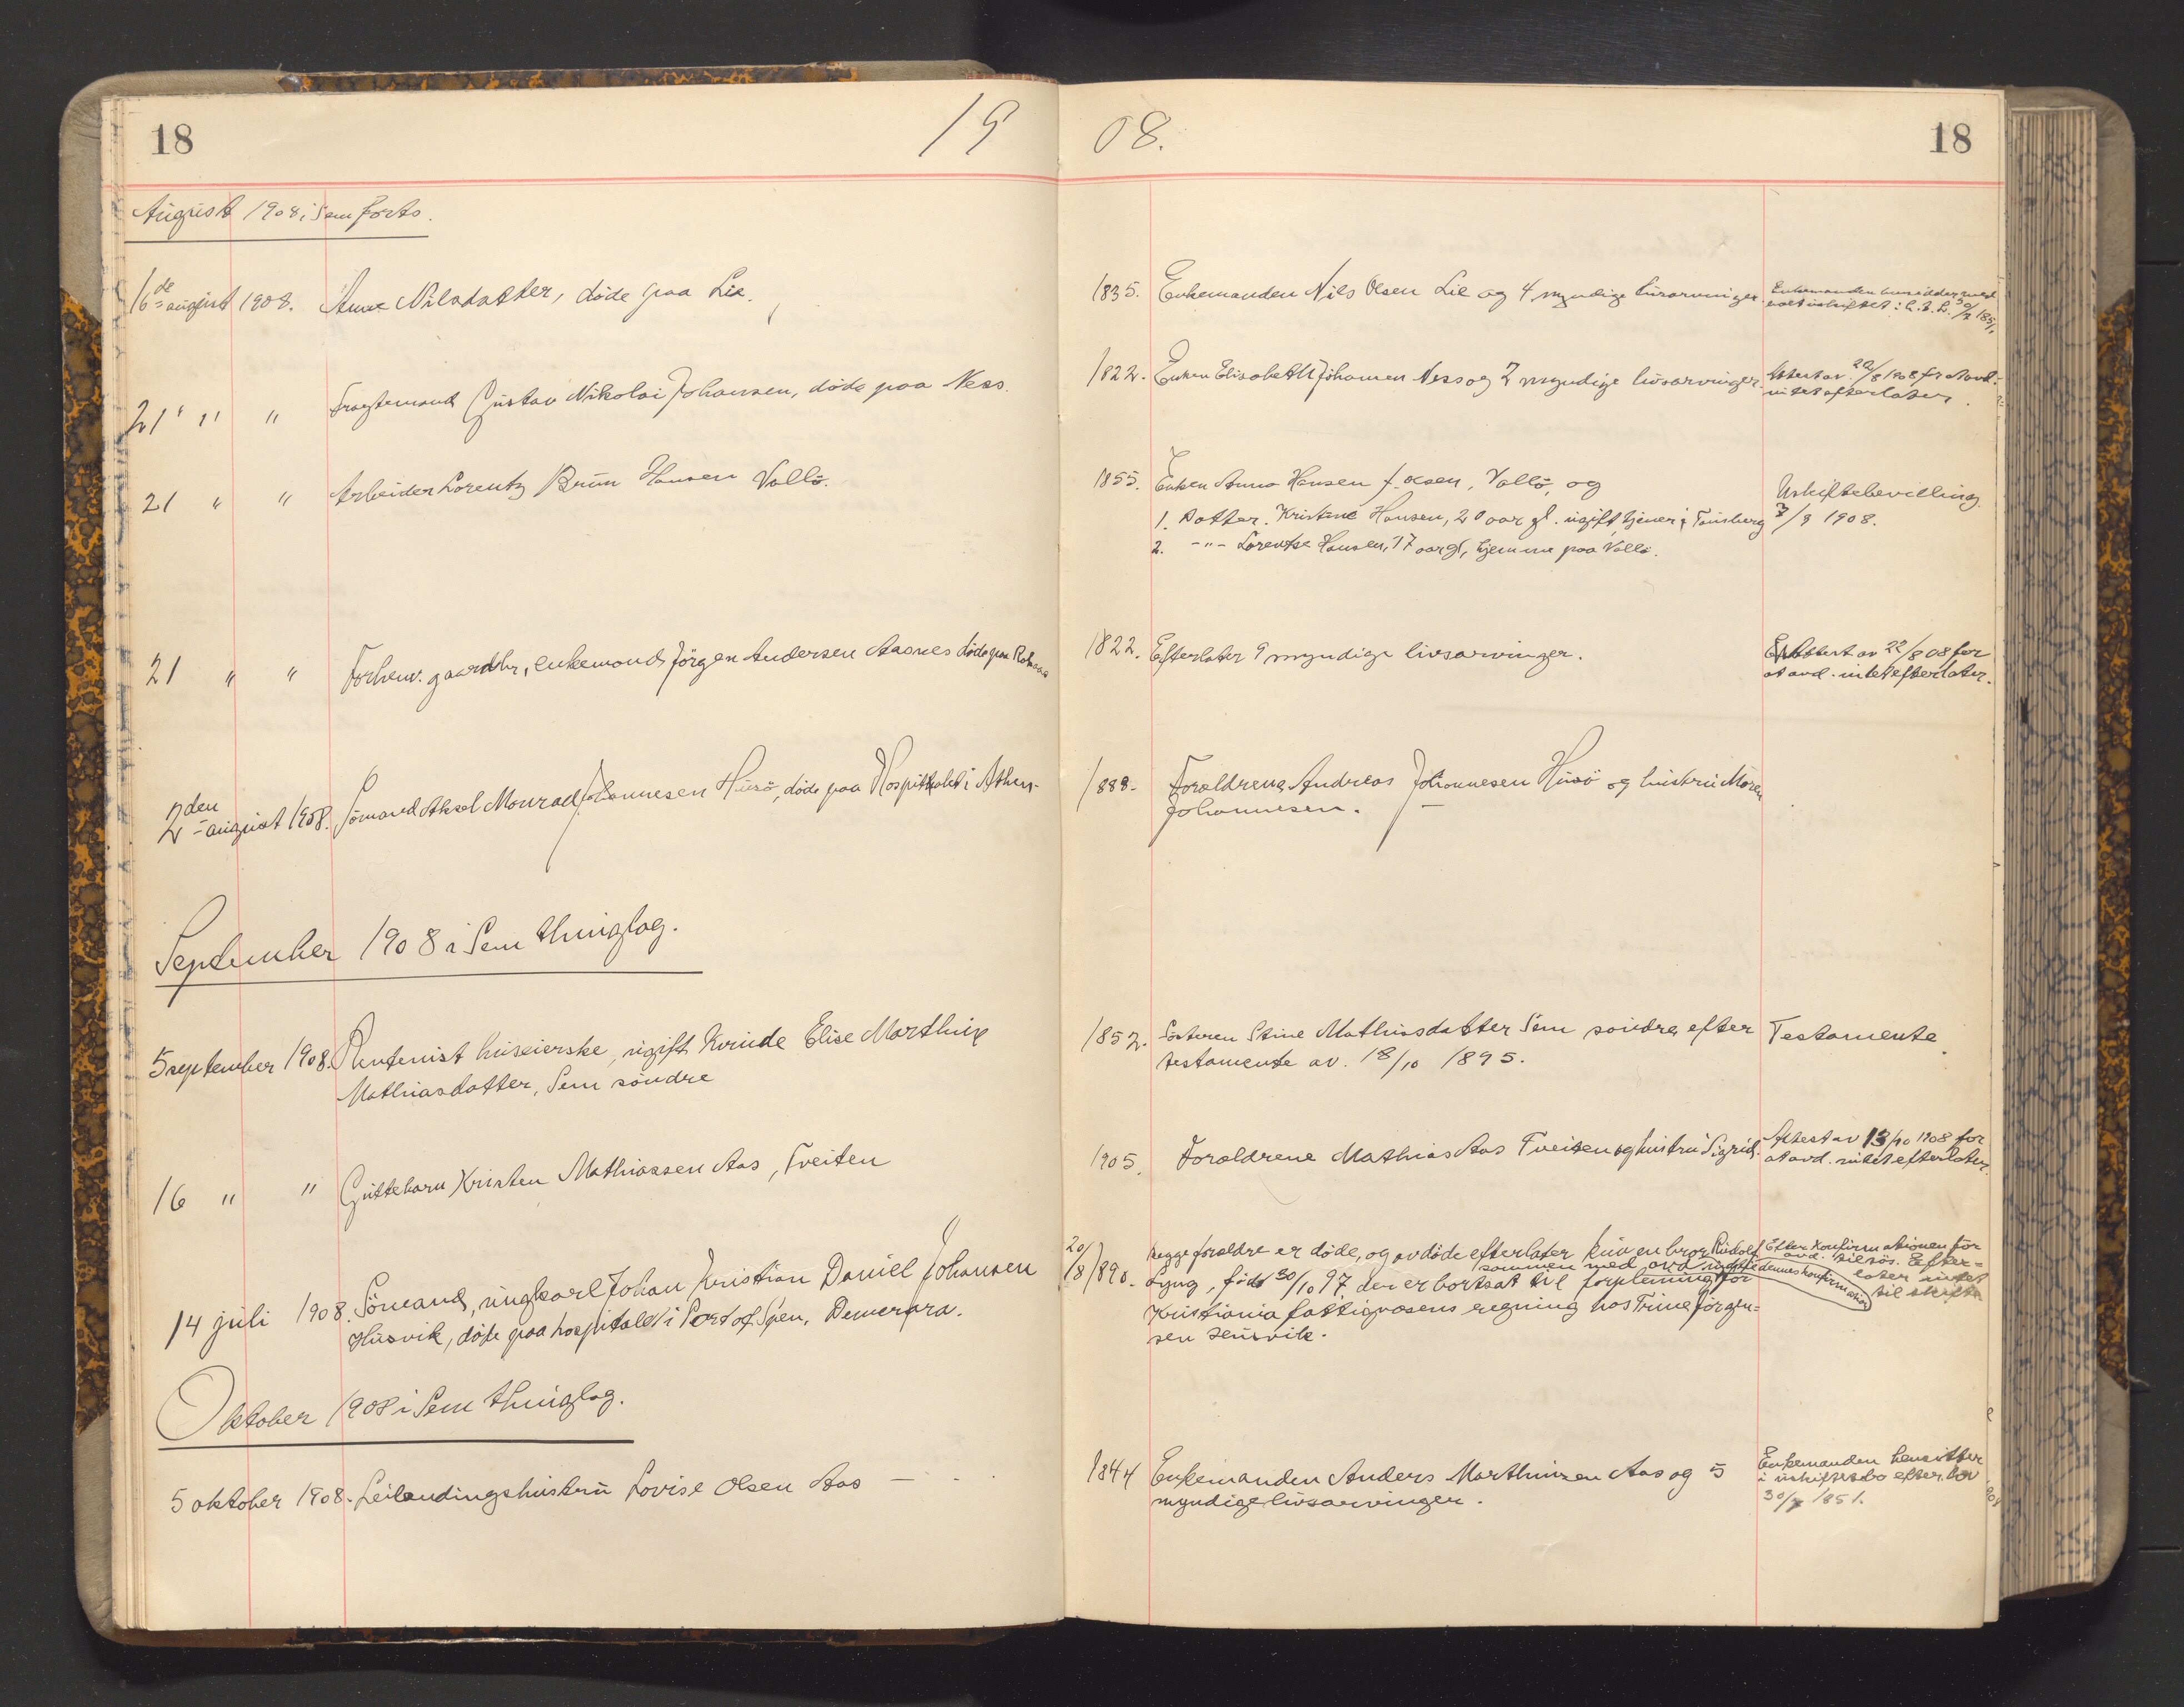 18
19
August 1908 i Sem forts.
16de august 1908. Anne Nilsdatter, døde paa Lie.
21 " " " Fragtemand Gustav Nikolai Johansen, døde paa Ness.
21 " " Arbeider Lorentz Brun Hansen Vallö.
21 " " Forhenv. gaardbr, enkemand Jörgen Andersen Aasnes döde paa
2den august 1908. Sömand Aksel Monrad Johannesen Husö, döde paa Hospitalet i Athen.
September 1908 i Sem thinglag.
5 september 1908. Rentenist huseierske, ugift Kvinde Elise Marthine
Mathiasdatter, Sem söndre
16 " " Guttebarn Kristen Mathiassen Aas, Tveiten
14 juli 1908. Sömand, ungkarl Johan Kristian Daniel Johansen
Husvik, döde paa hospitalet i Port of Spen, Demerara.
Oktober 1908 i Sem thinglag.
5 oktober 1908. Leilendingshustru Lovise Olsen Aas —
08.
18
1835. Enkemanden Nils Olsen Lie og 4 myndige livsarvinger.
Enkemanden hensidder med
boet uskiftet : L. 30/7 1851.
1822. Enken Elisabeth Johansen Ness og 7 myndige livsarvinger.
Attest av 22/8 1908 for at avd.
intet efterlater.
1855. Enken Anna Hansen f. Olsen, Vallö, og
1. Datter. Kristine Hansen, 20 aar gl. ugift, tjener i Tönsberg
2. -"- Lorentse Hansen, 17 aar gl, hjemme paa Vallö.
Uskiftebevilling
3/9 1908.
1822. Efterlater 9 myndige livsarvinger.
Attest av 22/8 08 for
at avd. intet efterlater.
1888. Forældrene Andreas Johannesen Husö og hustru Maren
Johannesen. —
1852. Søsteren Stine Mathiasdatter Sem söndre efter
testamente av. 18/10 1895.
Testamente.
1905. Forældrene Mathias Aas Tveiten og hustru Sigrid.
Attest av 13/10 1908 for
at avd. intet efterlater.
20/8 1890. Begge forældre er døde, og avdöde efterlater kun en bror Rudolf
Lyng, född 30/10 97, der er bortsat til forpleining for
sammen med avd indtil dennes konfirmation
Kristiania fattigvæsens regning hos Trine Jörgen=
sen Husvik.
Efter Konfirmationen for
avd. tilsös. Efter=
later intet
til skifte
1844 Enkemanden Anders Marthinsen Aas og 5
myndige livsarvinger.
Enkemanden hensitter
i uskiftet bo efter lov
30/7 1851.